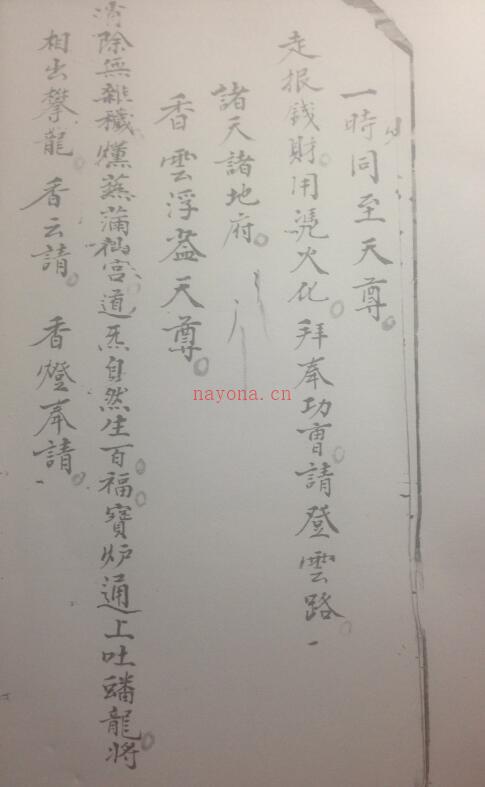 一時同至天尊。
走报钱財用凭火化。拜奉功曹請登雲路
諸天諸地府。
香雲浮盖天尊。
消除無雜穢燻蒸蒲仙宮。道炁自然生百福。寶炉通上吐蟠龍。將
相出攀龍。香云請。香燈奉請。
nayona.cn